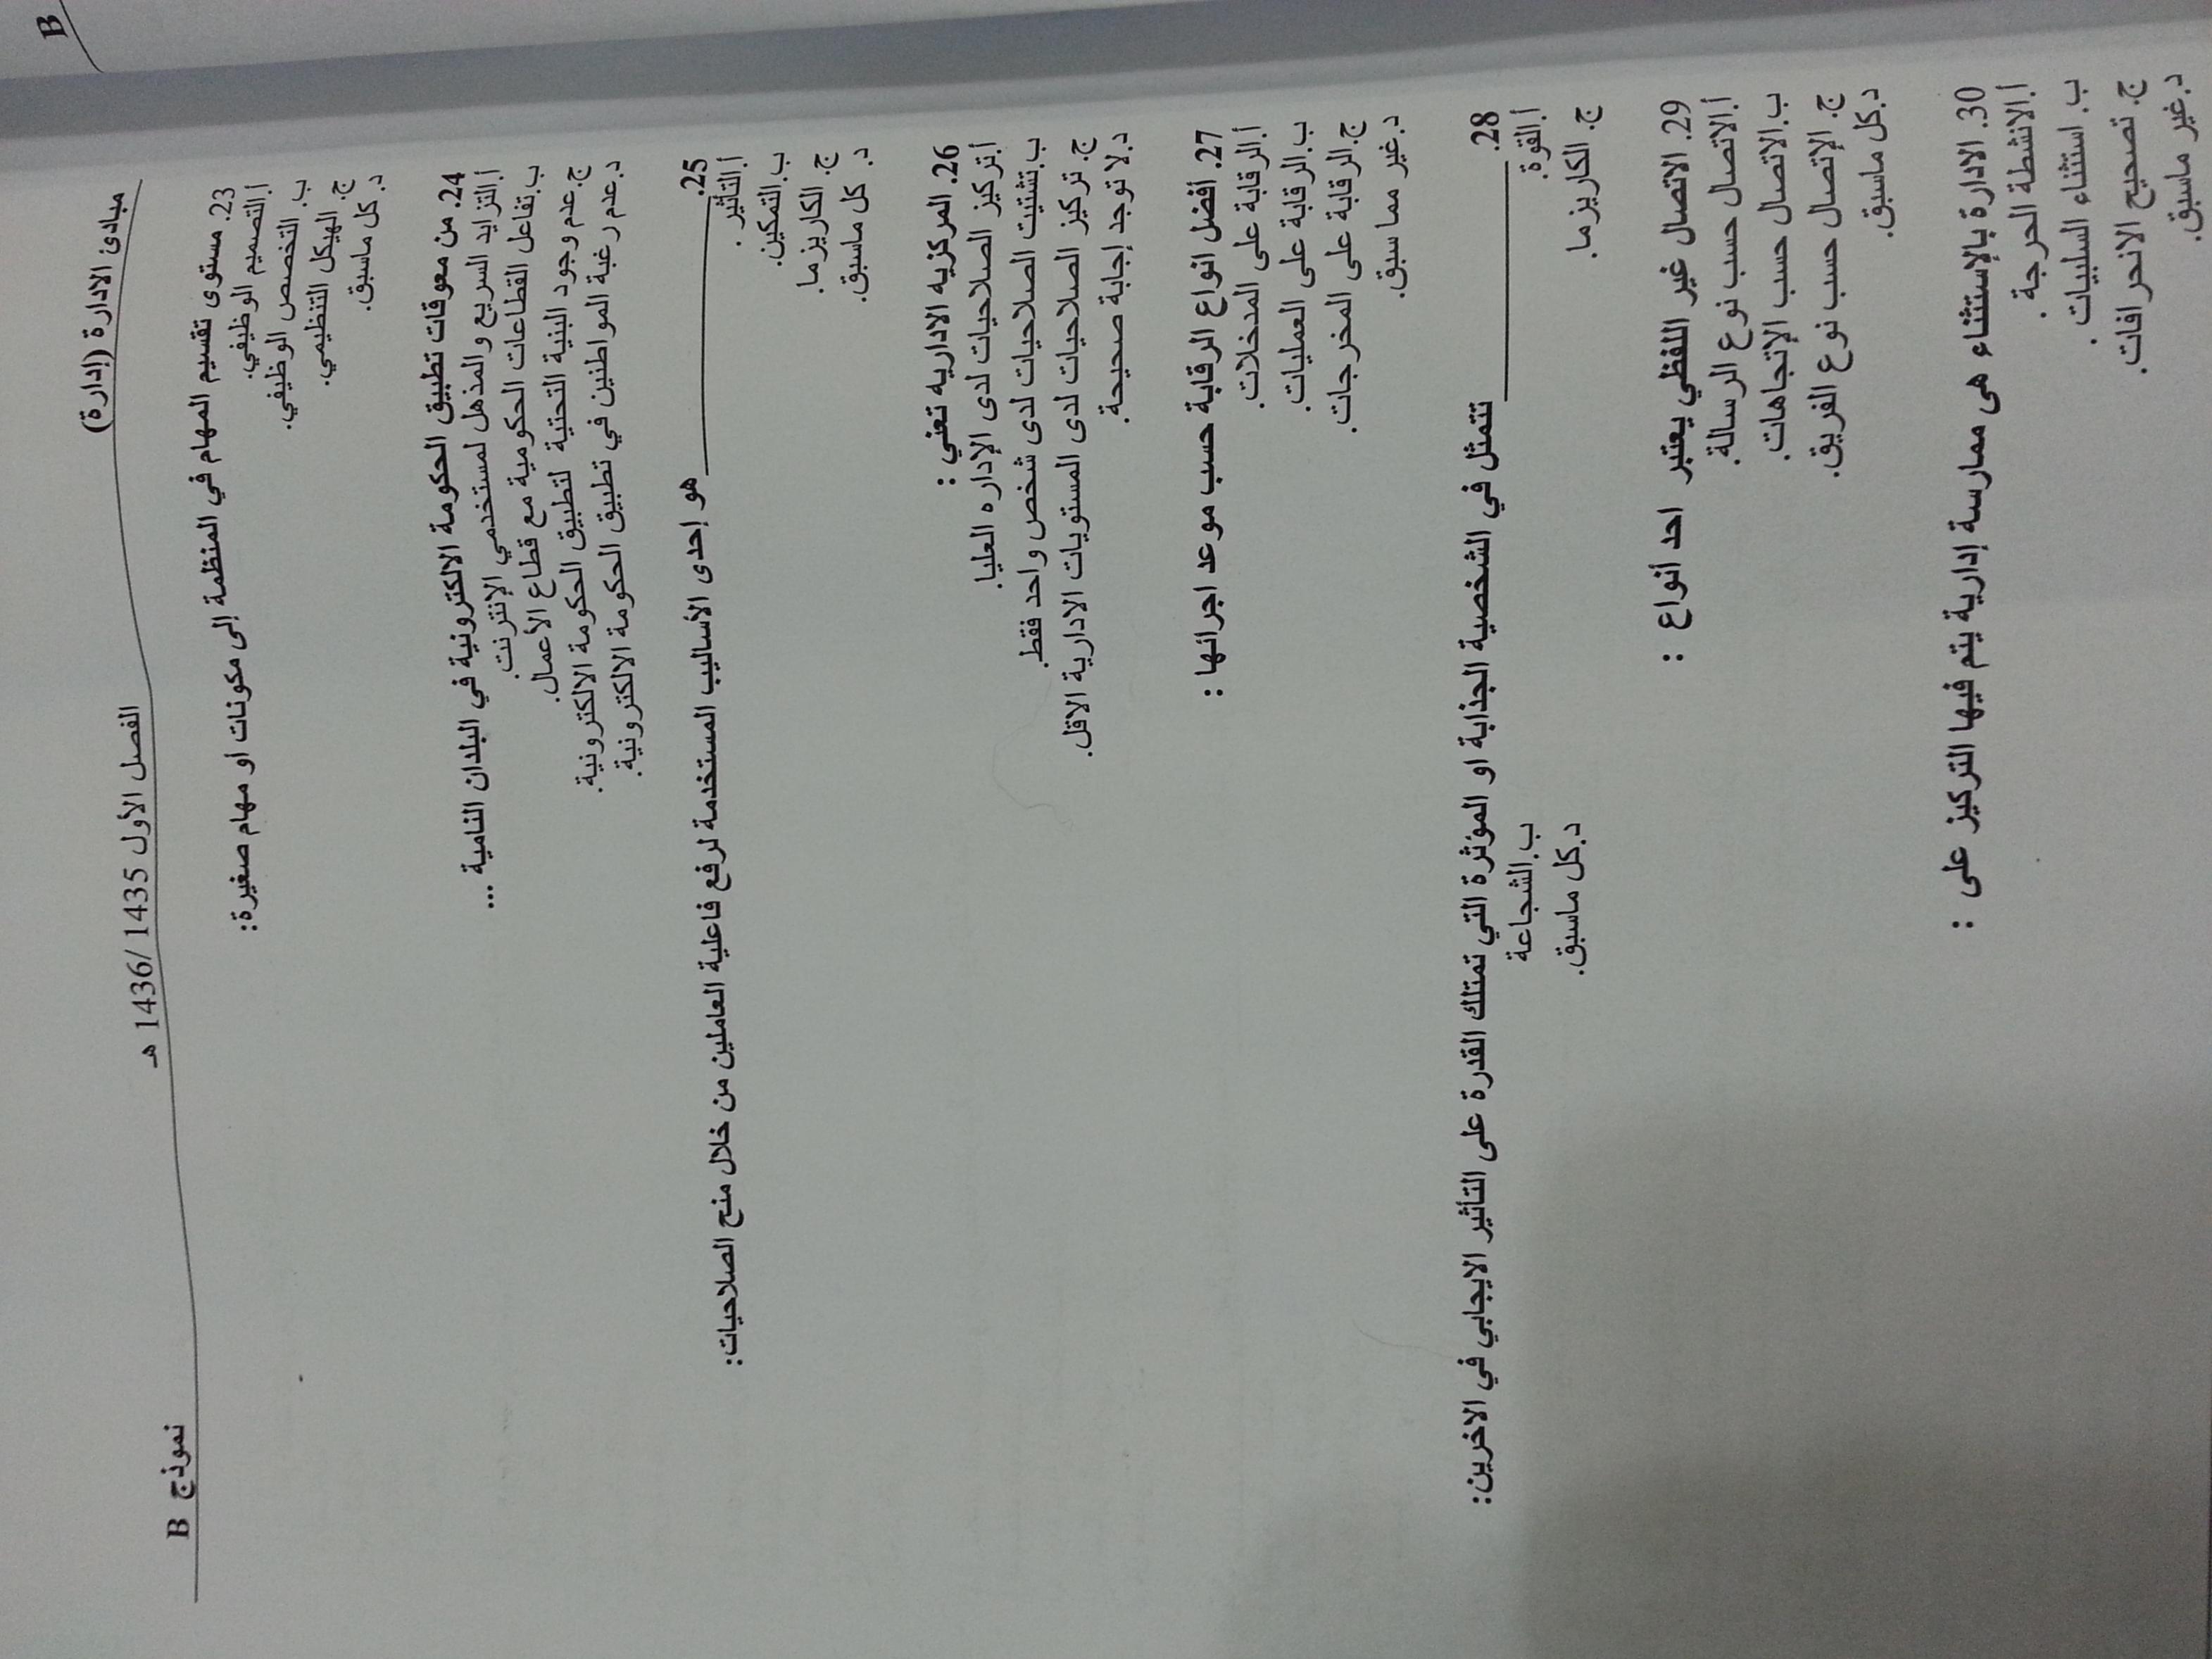 B
مبادئ الادارة (إدارة)
الفصل الأول 1435 /1436 هـ
نموذج B
23. مستوى تقسيم المهام في المنظمة إلى مكونات او مهام صغيرة:
أ.التصميم الوظيفي.
ب. التخصص الوظيفي.
ج. الهيكل التنظيمي.
د. كل ماسبق.
24. من معوقات تطبيق الحكومة الالكترونية في البلدان النامية ...
أ.التزايد السريع والمذهل لمستخدمي الإنترنت.
ب.تفاعل القطاعات الحكومية مع قطاع الأعمال.
ج.عدم وجود البنية التحتية لتطبيق الحكومة الالكترونية.
د.عدم رغبة المواطنين في تطبيق الحكومة الالكترونية.
25. ــــــــــــــــ هو إحدى الأساليب المستخدمة لرفع فاعلية العاملين من خلال منح الصلاحيات:
أ.التأثير .
ب.التمكين.
ج. الكاريزما.
د. كل ماسبق.
26. المركزيه الاداريه تعني :
أ.تركيز الصلاحيات لدى الإداره العليا.
ب.تشتيت الصلاحيات لدى شخص واحد فقط.
ج. تركيز الصلاحيات لدى المستويات الادارية الاقل.
د.لا توجد إجابة صحيحة.
27. أفضل انواع الرقابة حسب موعد اجرائها :
أ.الرقابة على المدخلات.
ب.الرقابة على العمليات.
ج.الرقابة على المخرجات.
د.غير مما سبق.
28. ــــــــــــــــ تتمثل في الشخصية الجذابة او المؤثرة التي تمتلك القدرة على التأثير الايجابي في الاخرين:
أ.القوة. ب.الشجاعة
ج. الكاريزما. د.كل ماسبق.
29. الاتصال غير اللفظي يعتبر احد أنواع :
أ.الاتصال حسب نوع الرسالة.
ب.الاتصال حسب الإتجاهات.
ج. الإتصال حسب نوع الفريق.
د.كل ماسبق.
30. الادارة بالإستثناء هى ممارسة إدارية يتم فيها التركيز على :
أ.الانشطة الحرجة .
ب. استثناء السلبيات .
ج. تصحيح الانحرافات.
د.غير ماسبق.